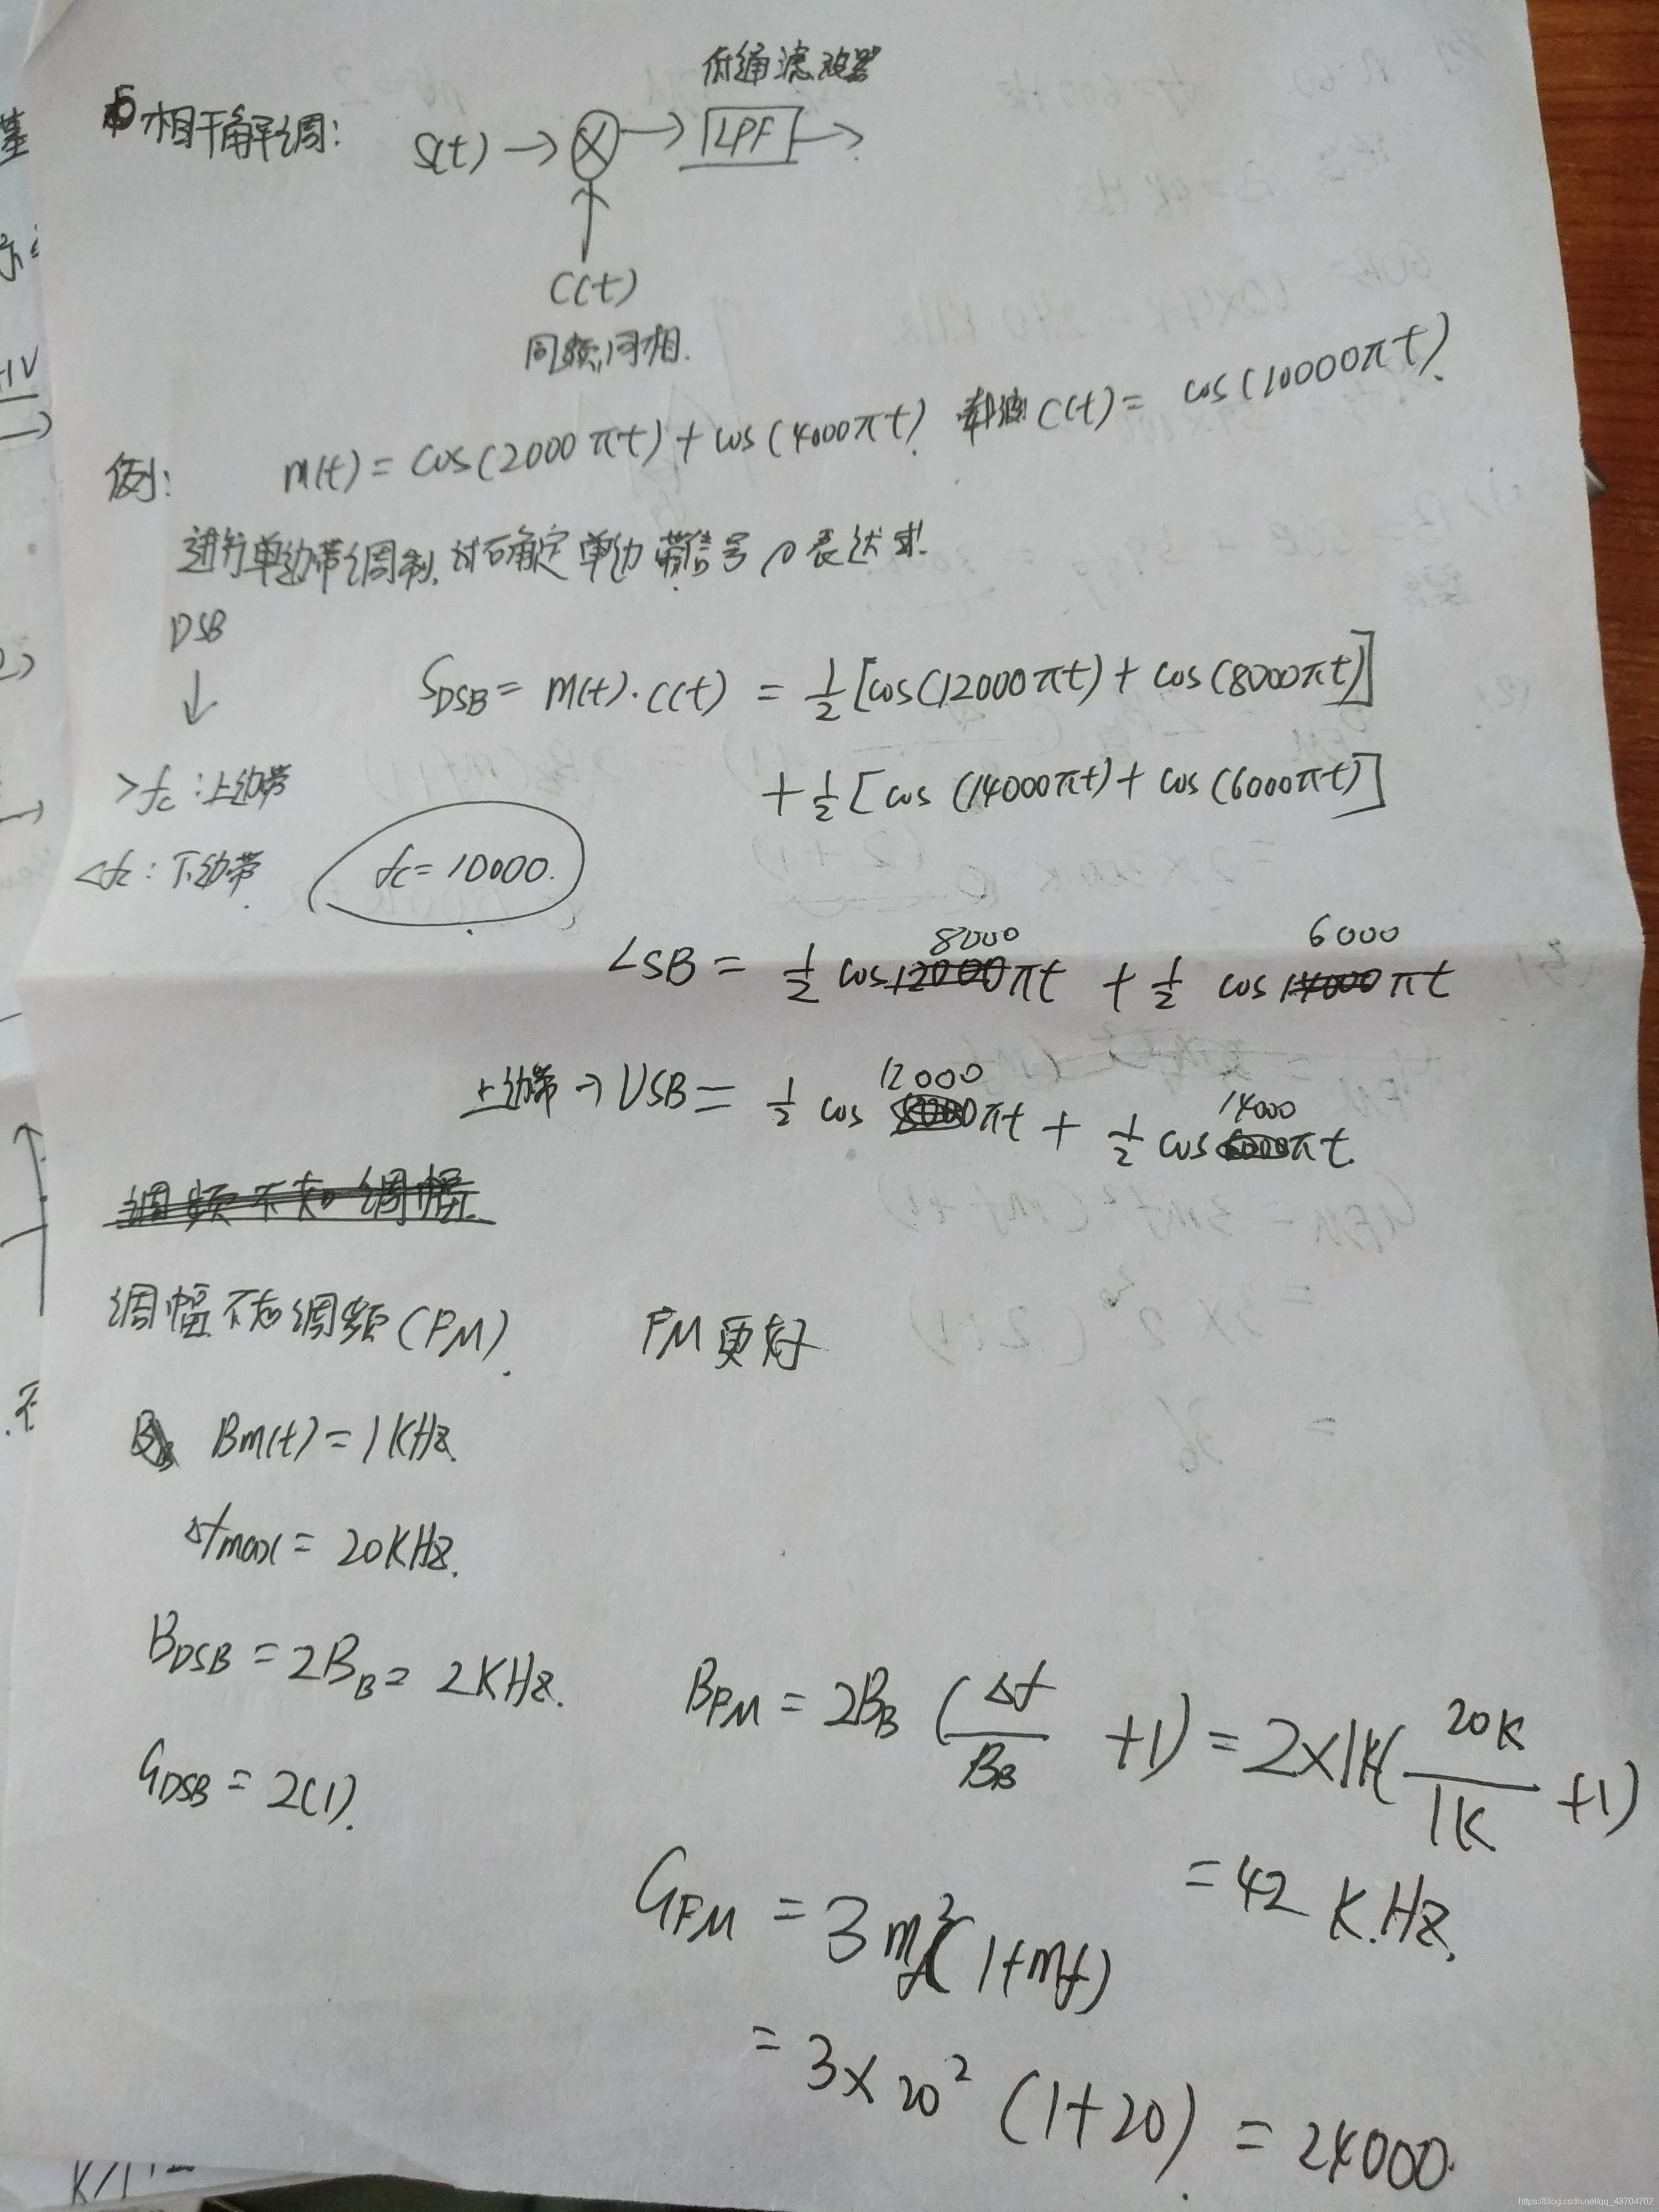 低通滤波器
相干解调: S(t) → ⊗ → LPF →
C(t)
同频,同相.
例: m(t) = cos(2000πt) + cos(4000πt) 载波C(t) = cos(10000πt).
进行单边带调制,试确定单边带信号の表达式.
DSB
↓
S_DSB = m(t)·C(t) = 1/2 [cos(12000πt) + cos(8000πt)]
+ 1/2 [cos(14000πt) + cos(6000πt)]
>fc : 上边带
<fc : 下边带.
fc = 10000.
LSB = 1/2 cos 8000πt + 1/2 cos 6000πt
上边带 → USB = 1/2 cos 12000πt + 1/2 cos 14000πt.
调频不如调幅.
调幅不如调频(FM). FM更好
Bm(t) = 1KHz.
Δfmax = 20KHz.
B_DSB = 2B_B = 2KHz.
B_FM = 2B_B (Δf/B_B +1) = 2×1K(20K/1K +1)
= 42 K.Hz.
G_DSB = 2(1).
G_FM = 3mf²(1+mf)
= 3×20² (1+20) = 24000.
https://blog.csdn.net/qq_43704702